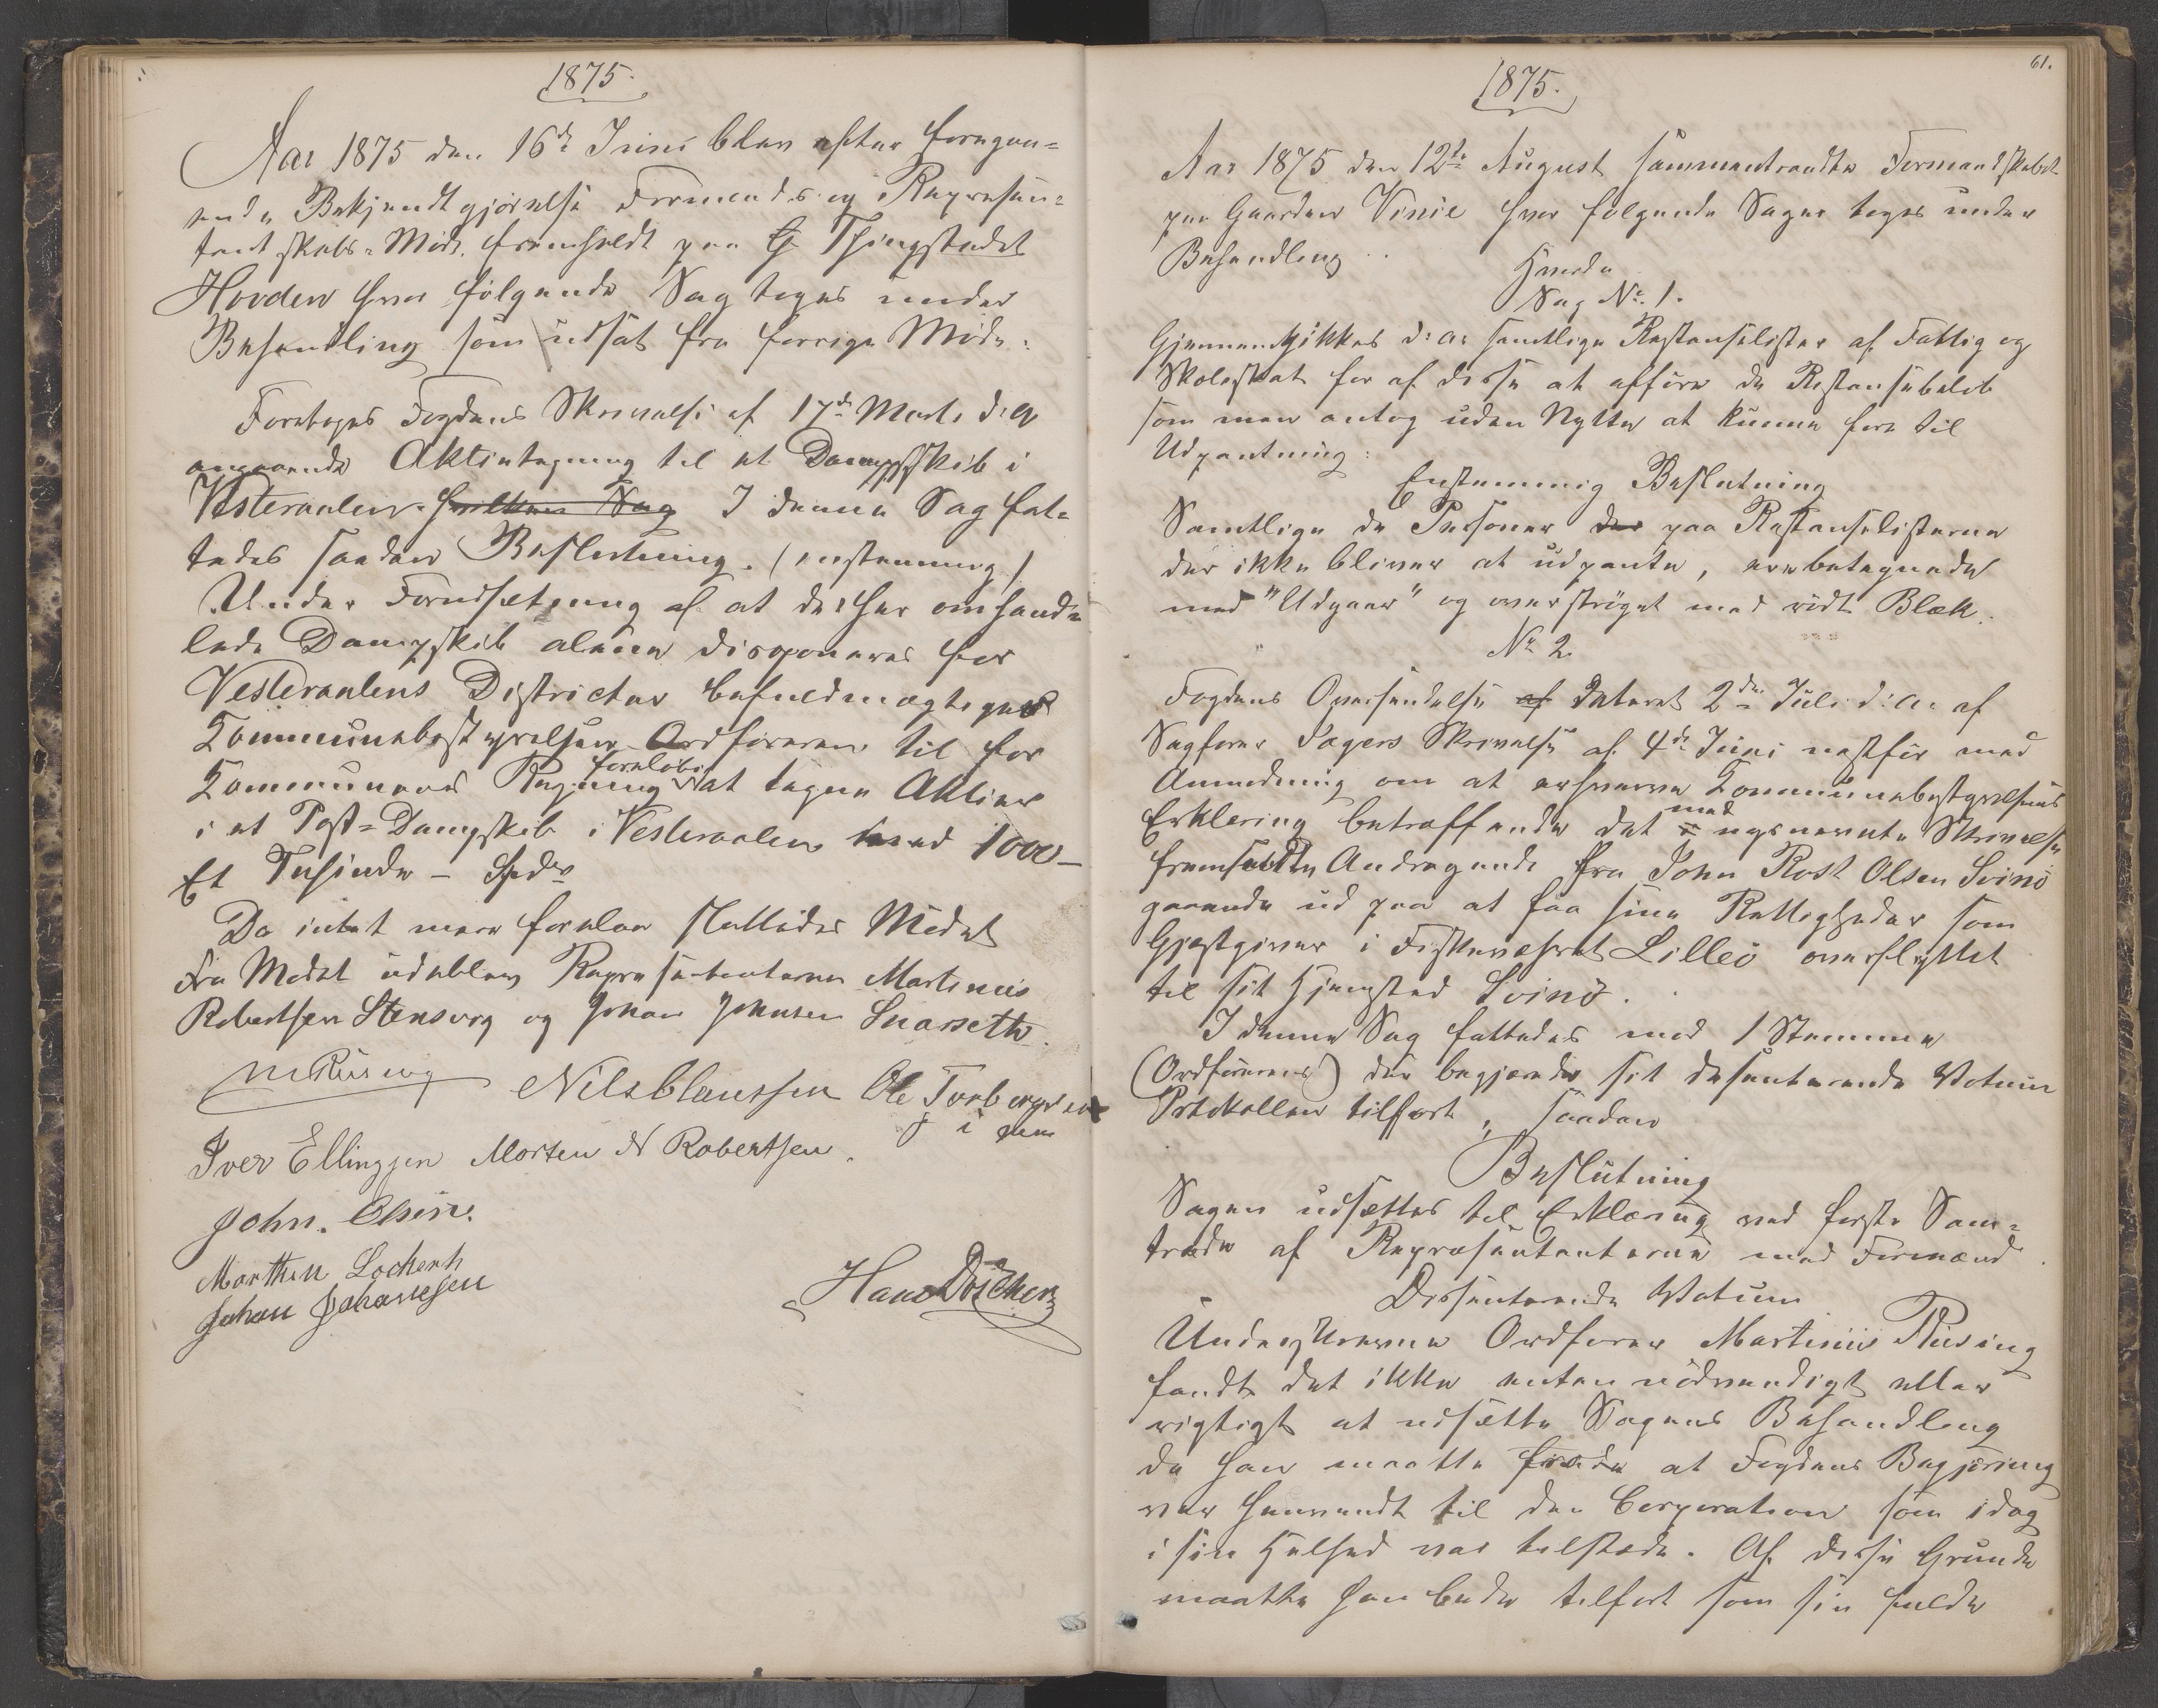 1875.
Aar 1875 den 16de Juni blev efter foregaa=
ende Bekjendtgjørelse Formands og Repræsen=
tantskabs=Møde fremholdt paa Thingstedet
Hovden hvor følgende Sag toges under
Behandling som udsat fra forrige Møde:
Foretoges Fogdens Skrivelse af 17de Marts d: A
angaaende Aktietegning til et Dampskib i
Vesteraalen. hvilken Sag I denne Sag fat=
tedes saadan Beslutning. (enstemmig)
Under Forudsetning af at det her omhand=
lede Dampskib alene disponeres for
Vesteraalens Districter befuldmægtiges
Kommunebestyrelsen Ordføreren til for
Kommunens Regning foreløbig at tegne Aktier
i et Post=Dampskib i Vesteraalen med 1000 –
Et Tusinde – Spdr
Da intet mere forelaa sluttedes Mødet
Fra Mødet udeblev Repræsentanterne Martinus
Robertsen Stensvog og Johan Johnsen Snarseth.
MRusing Nils Claussen Ole Torbergsen
Iver Ellingsen Morten N Robertsen. i pen
John. Olsen.
Marthin Lochert
Johan Johannesen
Hans Döscher
61.
1875.
Aar 1875 den 12te August sammentraadte Formandskabet
paa Gaarden Vinie hvor følgende Sager toges under
Behandling
Hvorda
Sag No. 1.
Gjennemgikkes d: a: samtlige Restanselister af Fattig og
Skoleskat for af disse at afføre de Restansebeløb
som man antog uden Nytte at kunne føre til
Udpantning:
Enstemmig Beslutning
Samtlige de Personer der paa Restanselisterne
der ikke bliver at udpante, ere betegnede
med "Udgaar" og overstrøget med rødt Blæk.
No 2.
Fogdens Oversendelse af dateret 2den Juli d: a: af
Sagfører Sagers Skrivelse af 4de Juni næstfør med
Anmodning om at erhverve Kommunebestyrelsens
Erklering betreffende det i med nysnevnte Skrivelse
fremsatte Andragende fra John Rost Olsen Svinø
gaaende ud paa at faa sine Rettigheder som
Gjestgiver i Fiskeværet Lilleö overflyttet
til sit Hjemsted Svinö.
I denne Sag fattedes med 1 Stemme
(Ordførerens) der begjærede sit desenterende Votum
Protokollen tilført, saadan
Beslutning
Sagen udsættes til Erklæring ved første Sam=
træde af Repræsentanterne med Formænd.
Dissenterende Votum
Undertegnede Ordfører Martinus Rusing
fandt det ikke enten nødvendigt eller
rigtigt at udsætte Sagens Behandling
da han maatte finde at Fogdens Begjæring
var henvendt til den Corporation som idag
i sin Helhed var tilstede. Af disse Grunde
maatte han bede tilført som sin fulde